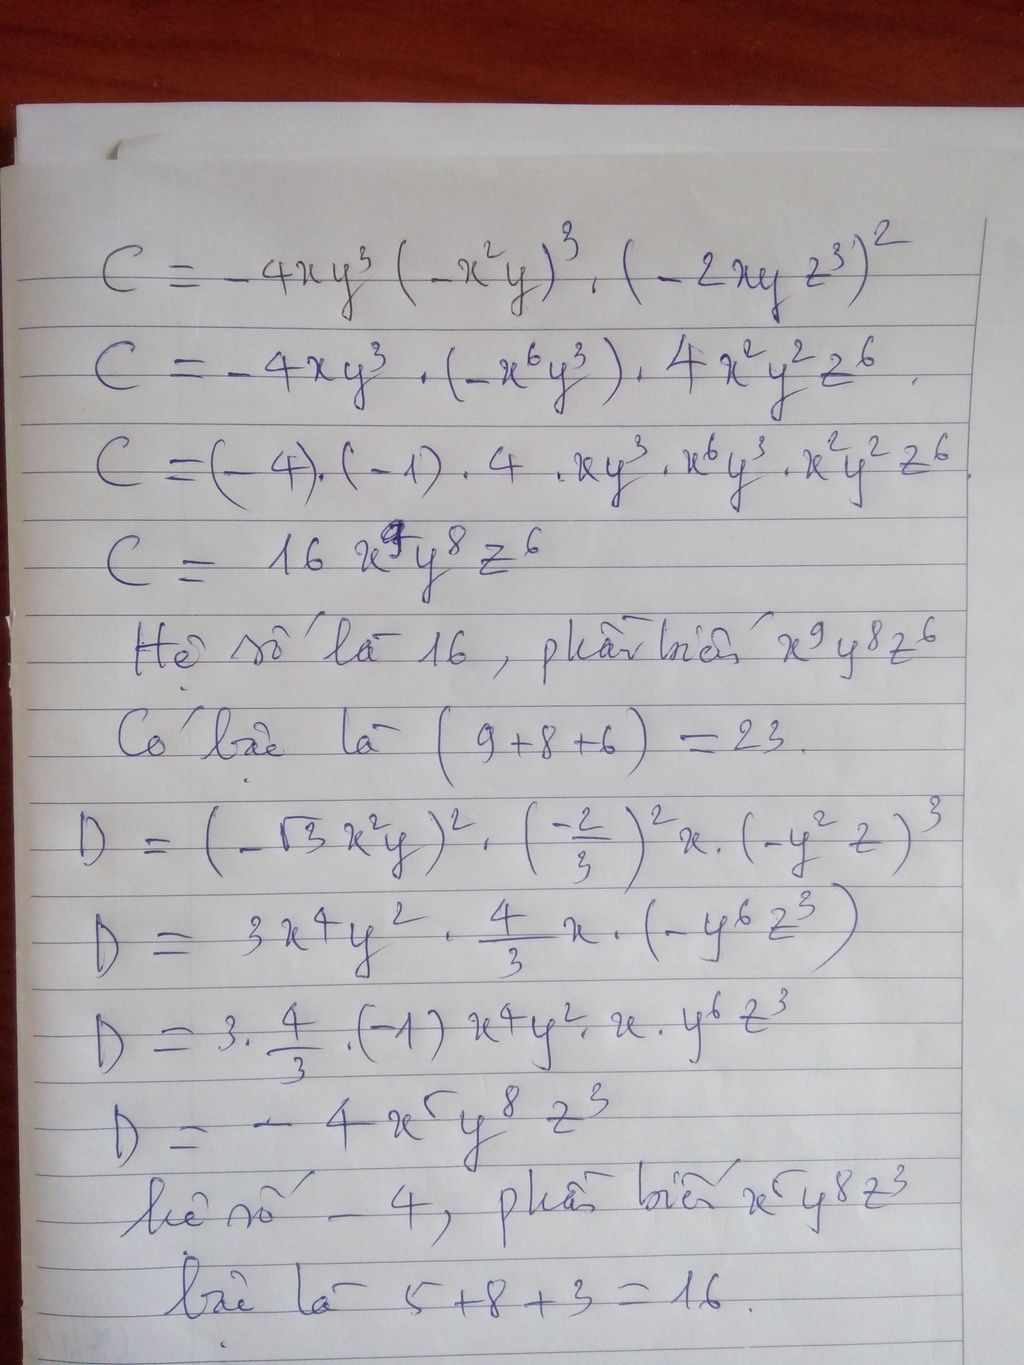 C = - 4xy³ (-x²y)³ . (-2xy z³)²
C = - 4xy³ . (-x⁶y³) . 4x²y²z⁶ .
C = (-4).(-1) . 4 . xy³ . x⁶y³ . x²y²z⁶.
C = 16 x⁹y⁸z⁶
Hệ số là 16, phần biến x⁹y⁸z⁶
Có bậc là (9+8+6) = 23.
D = (-√3 x²y)² . (-2/3)² x . (-y²z)³
D = 3x⁴y² . 4/3 x . (-y⁶z³)
D = 3 . 4/3 . (-1) x⁴y² . x . y⁶z³
D = - 4x⁵y⁸z³
hệ số - 4, phần biến x⁵y⁸z³
bậc là 5+8+3 = 16.